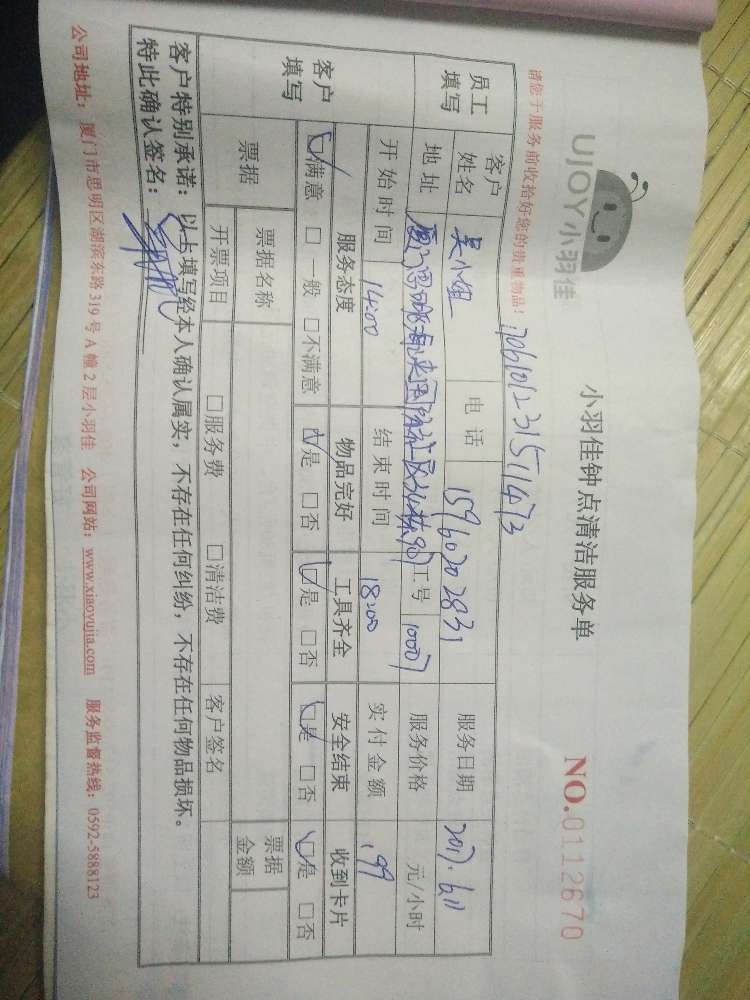 UJOY小羽佳
小羽佳钟点清洁服务单
NO.0112670
请您于服务前收拾好您的贵重物品！
员工填写
客户姓名 吴小姐 电话 15960202831 服务日期 2017.6.11
地址 工号 10007 服务价格 元/小时
开始时间 14:00 结束时间 18:00 实付金额 199
客户填写
服务态度 物品完好 工具齐全 安全结束 收到卡片
☑满意 □一般 □不满意 ☑是 □否 ☑是 □否 ☑是 □否 ☑是 □否
票据 票据名称 票据金额
开票项目 □服务费 □清洁费 客户签名
客户特别承诺：以上填写经本人确认属实，不存在任何纠纷，不存在任何物品损坏。
特此确认签名：
公司地址：厦门市思明区湖滨东路319号A幢2层小羽佳 公司网站：www.xiaoyujia.com 服务监督热线：0592-5888123